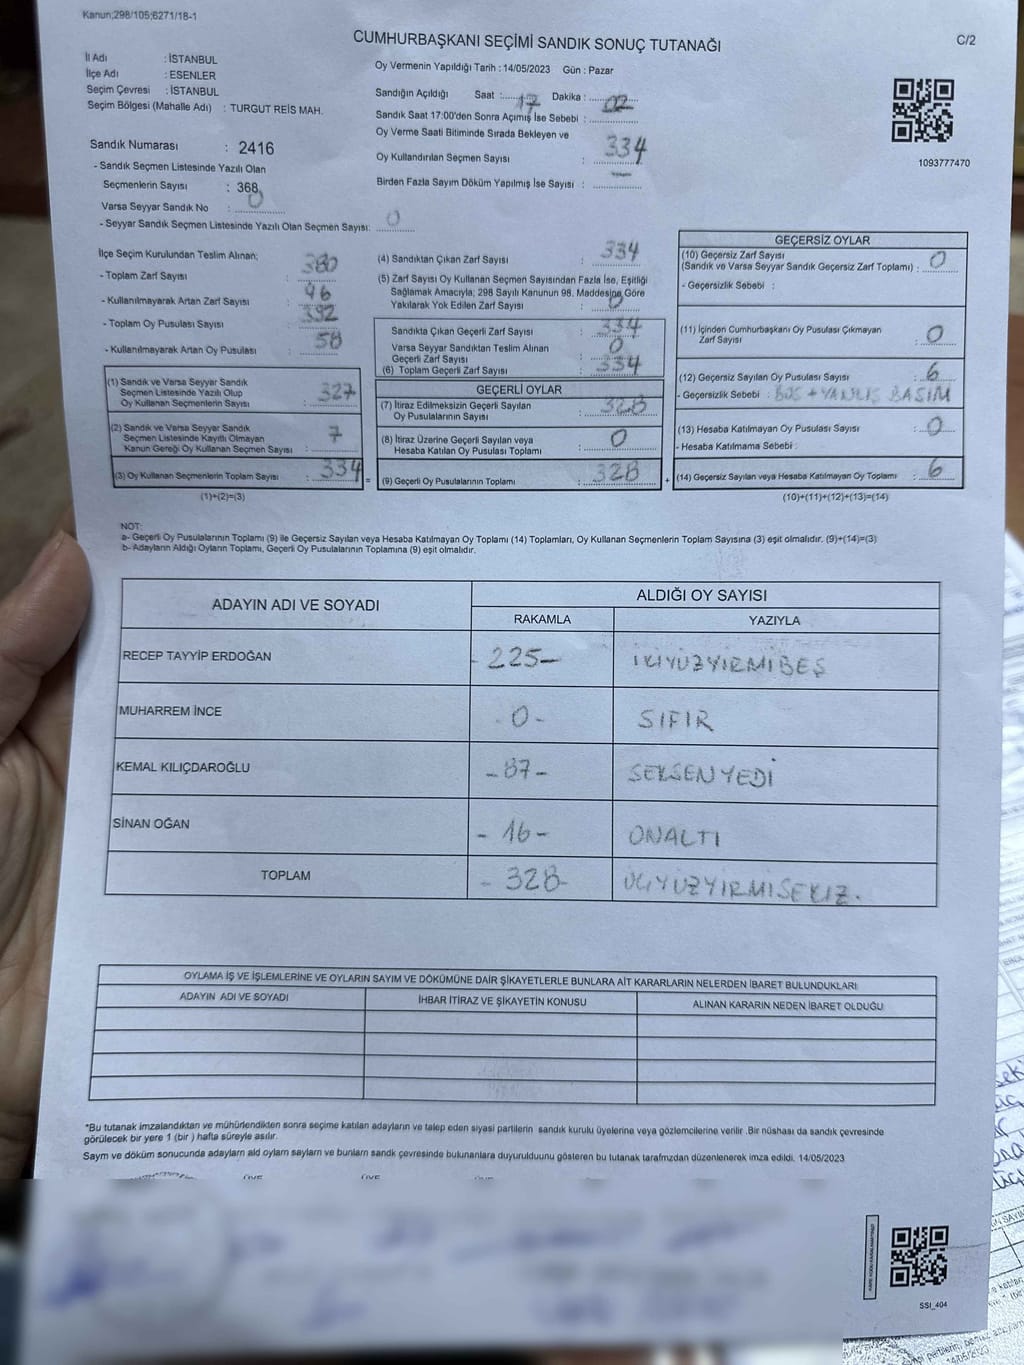 Kanun;298/105;6271/18-1
CUMHURBAŞKANI SEÇİMİ SANDIK SONUÇ TUTANAĞI
C/2
İl Adı : İSTANBUL
İlçe Adı : ESENLER
Seçim Çevresi : İSTANBUL
Seçim Bölgesi (Mahalle Adı) : TURGUT REİS MAH.
Oy Vermenin Yapıldığı Tarih : 14/05/2023 Gün : Pazar
Sandığın Açıldığı Saat : 17 Dakika : 02
Sandık Saat 17:00'den Sonra Açımış İse Sebebi :
Oy Verme Saati Bitiminde Sırada Bekleyen ve
Oy Kullandırılan Seçmen Sayısı : 334
Birden Fazla Sayım Döküm Yapılmış İse Sayısı : -
1093777470
Sandık Numarası : 2416
- Sandık Seçmen Listesinde Yazılı Olan
Seçmenlerin Sayısı : 368
Varsa Seyyar Sandık No : 0
- Seyyar Sandık Seçmen Listesinde Yazılı Olan Seçmen Sayısı: 0
İlçe Seçim Kurulundan Teslim Alınan;
- Toplam Zarf Sayısı : 380
- Kullanılmayarak Artan Zarf Sayısı : 46
- Toplam Oy Pusulası Sayısı : 392
- Kullanılmayarak Artan Oy Pusulası : 58
(1) Sandık ve Varsa Seyyar Sandık
Seçmen Listesinde Yazılı Olup
Oy Kullanan Seçmenlerin Sayısı : 327
(2) Sandık ve Varsa Seyyar Sandık
Seçmen Listesinde Kayıtlı Olmayan
Kanun Gereği Oy Kullanan Seçmen Sayısı : 7
(3) Oy Kullanan Seçmenlerin Toplam Sayısı : 334
(1)+(2)=(3)
(4) Sandıktan Çıkan Zarf Sayısı : 334
(5) Zarf Sayısı Oy Kullanan Seçmen Sayısından Fazla İse, Eşitliği
Sağlamak Amacıyla; 298 Sayılı Kanunun 98. Maddesine Göre
Yakılarak Yok Edilen Zarf Sayısı : 0
Sandıkta Çıkan Geçerli Zarf Sayısı : 334
Varsa Seyyar Sandıktan Teslim Alınan
Geçerli Zarf Sayısı : 0
(6) Toplam Geçerli Zarf Sayısı : 334
GEÇERLİ OYLAR
(7) İtiraz Edilmeksizin Geçerli Sayılan
Oy Pusulalarının Sayısı : 328
(8) İtiraz Üzerine Geçerli Sayılan veya
Hesaba Katılan Oy Pusulası Toplamı : 0
= (9) Geçerli Oy Pusulalarının Toplamı : 328 +
GEÇERSİZ OYLAR
(10) Geçersiz Zarf Sayısı
(Sandık ve Varsa Seyyar Sandık Geçersiz Zarf Toplamı) : 0
- Geçersizlik Sebebi :
(11) İçinden Cumhurbaşkanı Oy Pusulası Çıkmayan
Zarf Sayısı : 0
(12) Geçersiz Sayılan Oy Pusulası Sayısı : 6
- Geçersizlik Sebebi : BOŞ + YANLIŞ BASIM
(13) Hesaba Katılmayan Oy Pusulası Sayısı : 0
- Hesaba Katılmama Sebebi :
(14) Geçersiz Sayılan veya Hesaba Katılmayan Oy Toplamı : 6
(10)+(11)+(12)+(13)=(14)
NOT:
a- Geçerli Oy Pusulalarının Toplamı (9) ile Geçersiz Sayılan veya Hesaba Katılmayan Oy Toplamı (14) Toplamları, Oy Kullanan Seçmenlerin Toplam Sayısına (3) eşit olmalıdır. (9)+(14)=(3)
b- Adayların Aldığı Oyların Toplamı, Geçerli Oy Pusulalarının Toplamına (9) eşit olmalıdır.
ADAYIN ADI VE SOYADI
ALDIĞI OY SAYISI
RAKAMLA YAZIYLA
RECEP TAYYİP ERDOĞAN - 225 - İKİYÜZYİRMİBEŞ
MUHARREM İNCE - 0 - SIFIR
KEMAL KILIÇDAROĞLU - 87 - SEKSENYEDİ
SİNAN OĞAN - 16 - ONALTI
TOPLAM - 328 - ÜÇYÜZYİRMİSEKİZ.
OYLAMA İŞ VE İŞLEMLERİNE VE OYLARIN SAYIM VE DÖKÜMÜNE DAİR ŞİKAYETLERLE BUNLARA AİT KARARLARIN NELERDEN İBARET BULUNDUKLARI
ADAYIN ADI VE SOYADI İHBAR İTİRAZ VE ŞİKAYETİN KONUSU ALINAN KARARIN NEDEN İBARET OLDUĞU
*Bu tutanak imzalandıktan ve mühürlendikten sonra seçime katılan adayların ve talep eden siyasi partilerin sandık kurulu üyelerine veya gözlemcilerine verilir .Bir nüshası da sandık çevresinde
görülecek bir yere 1 (bir ) hafta süreyle asılır.
Saym ve döküm sonucunda adaylarn ald oylarn saylarn ve bunlarn sandk çevresinde bulunanlara duyurulduunu gösteren bu tutanak tarafmzdan düzenlenerek imza edildi. 14/05/2023
ÜYE ÜYE
SSI_404